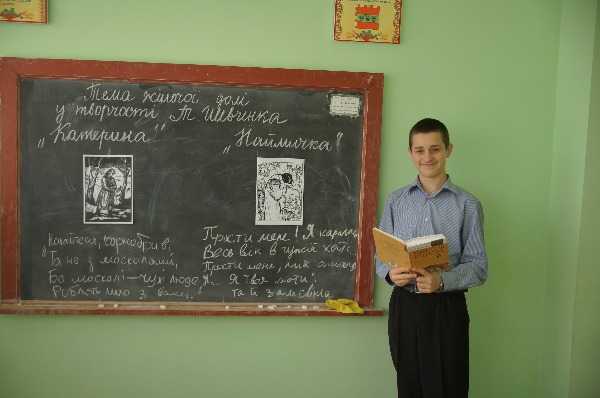 Тема жіночої долі
у творчості Т Шевченка
„Катерина“ „Наймичка“
Кохайтеся, чорнобриві,
Та не з москалями,
Бо москалі – чужі люде
Роблять лихо з вами.
Прости мене! Я каралась
Весь вік в чужій хаті
Прости мене, мій синочку
Я... Я твоя мати!
Та й замовкла